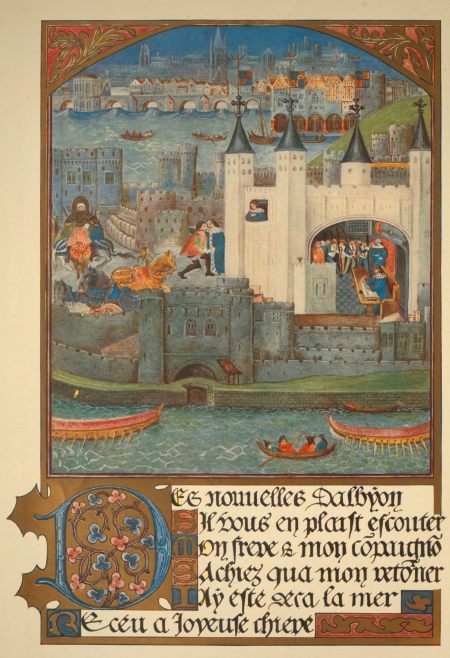 Des nouuelles Dalbyon
Sil vous en plaist escouter
Mon frere & mon cōpaignō
Sachiez qua mon retoner
Iay este deca la mer
Receu a Joyeuse chiere